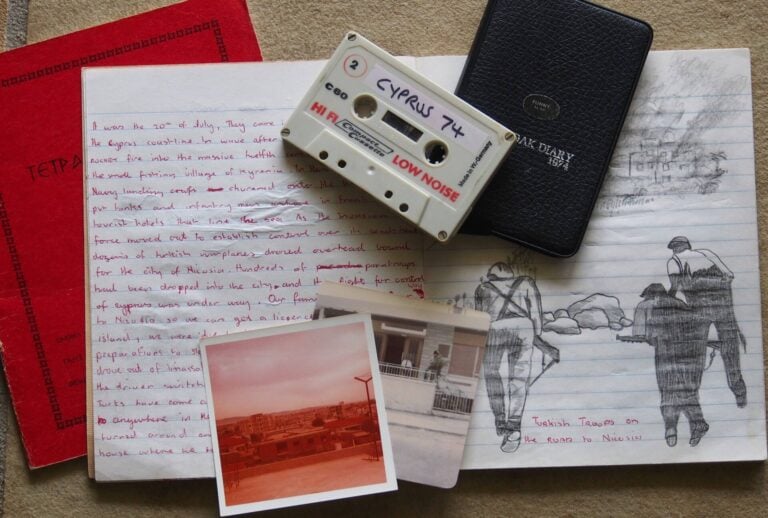 ΤΕΤΡΑ
It was the 20th of July, They came
the Cyprus coastline in wave after
rocket fire into the massive
the small fishing village of Kyrenia
Navy landing craft churned onto the
tanks and infantry men
tourist hotels that line the sea. As the invasion
force moved out to establish control over its beachhead
dozens of turkish warplanes droned overhead bound
for the city of Nicosia. Hundreds of paratroops
had been dropped into the city, and the fight for control
of cyprus was under way. Our
to Nicosia so we can get a licence
Island, we were
preparations to
drove out of limassol
the driver switch
Turks have come a
to anywhere in the
turned around an
house where he
2
C60
CYPRUS 74
HI FI
Compact Cassette
LOW NOISE
Made in W. Germany
DAK DIARY
1974
Turkish Troops on
the Road to Nicosia